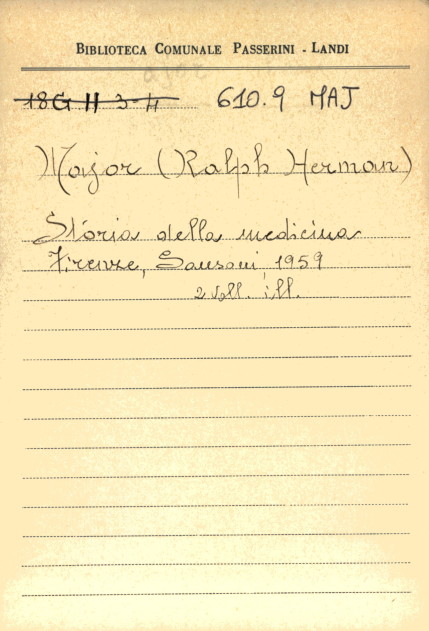 BIBLIOTECA COMUNALE PASSERINI - LANDI
18G H 3-4 610.9 MAJ
Major (Ralph Herman)
Storia della medicina
Firenze, Sansoni, 1959
2 voll. ill.